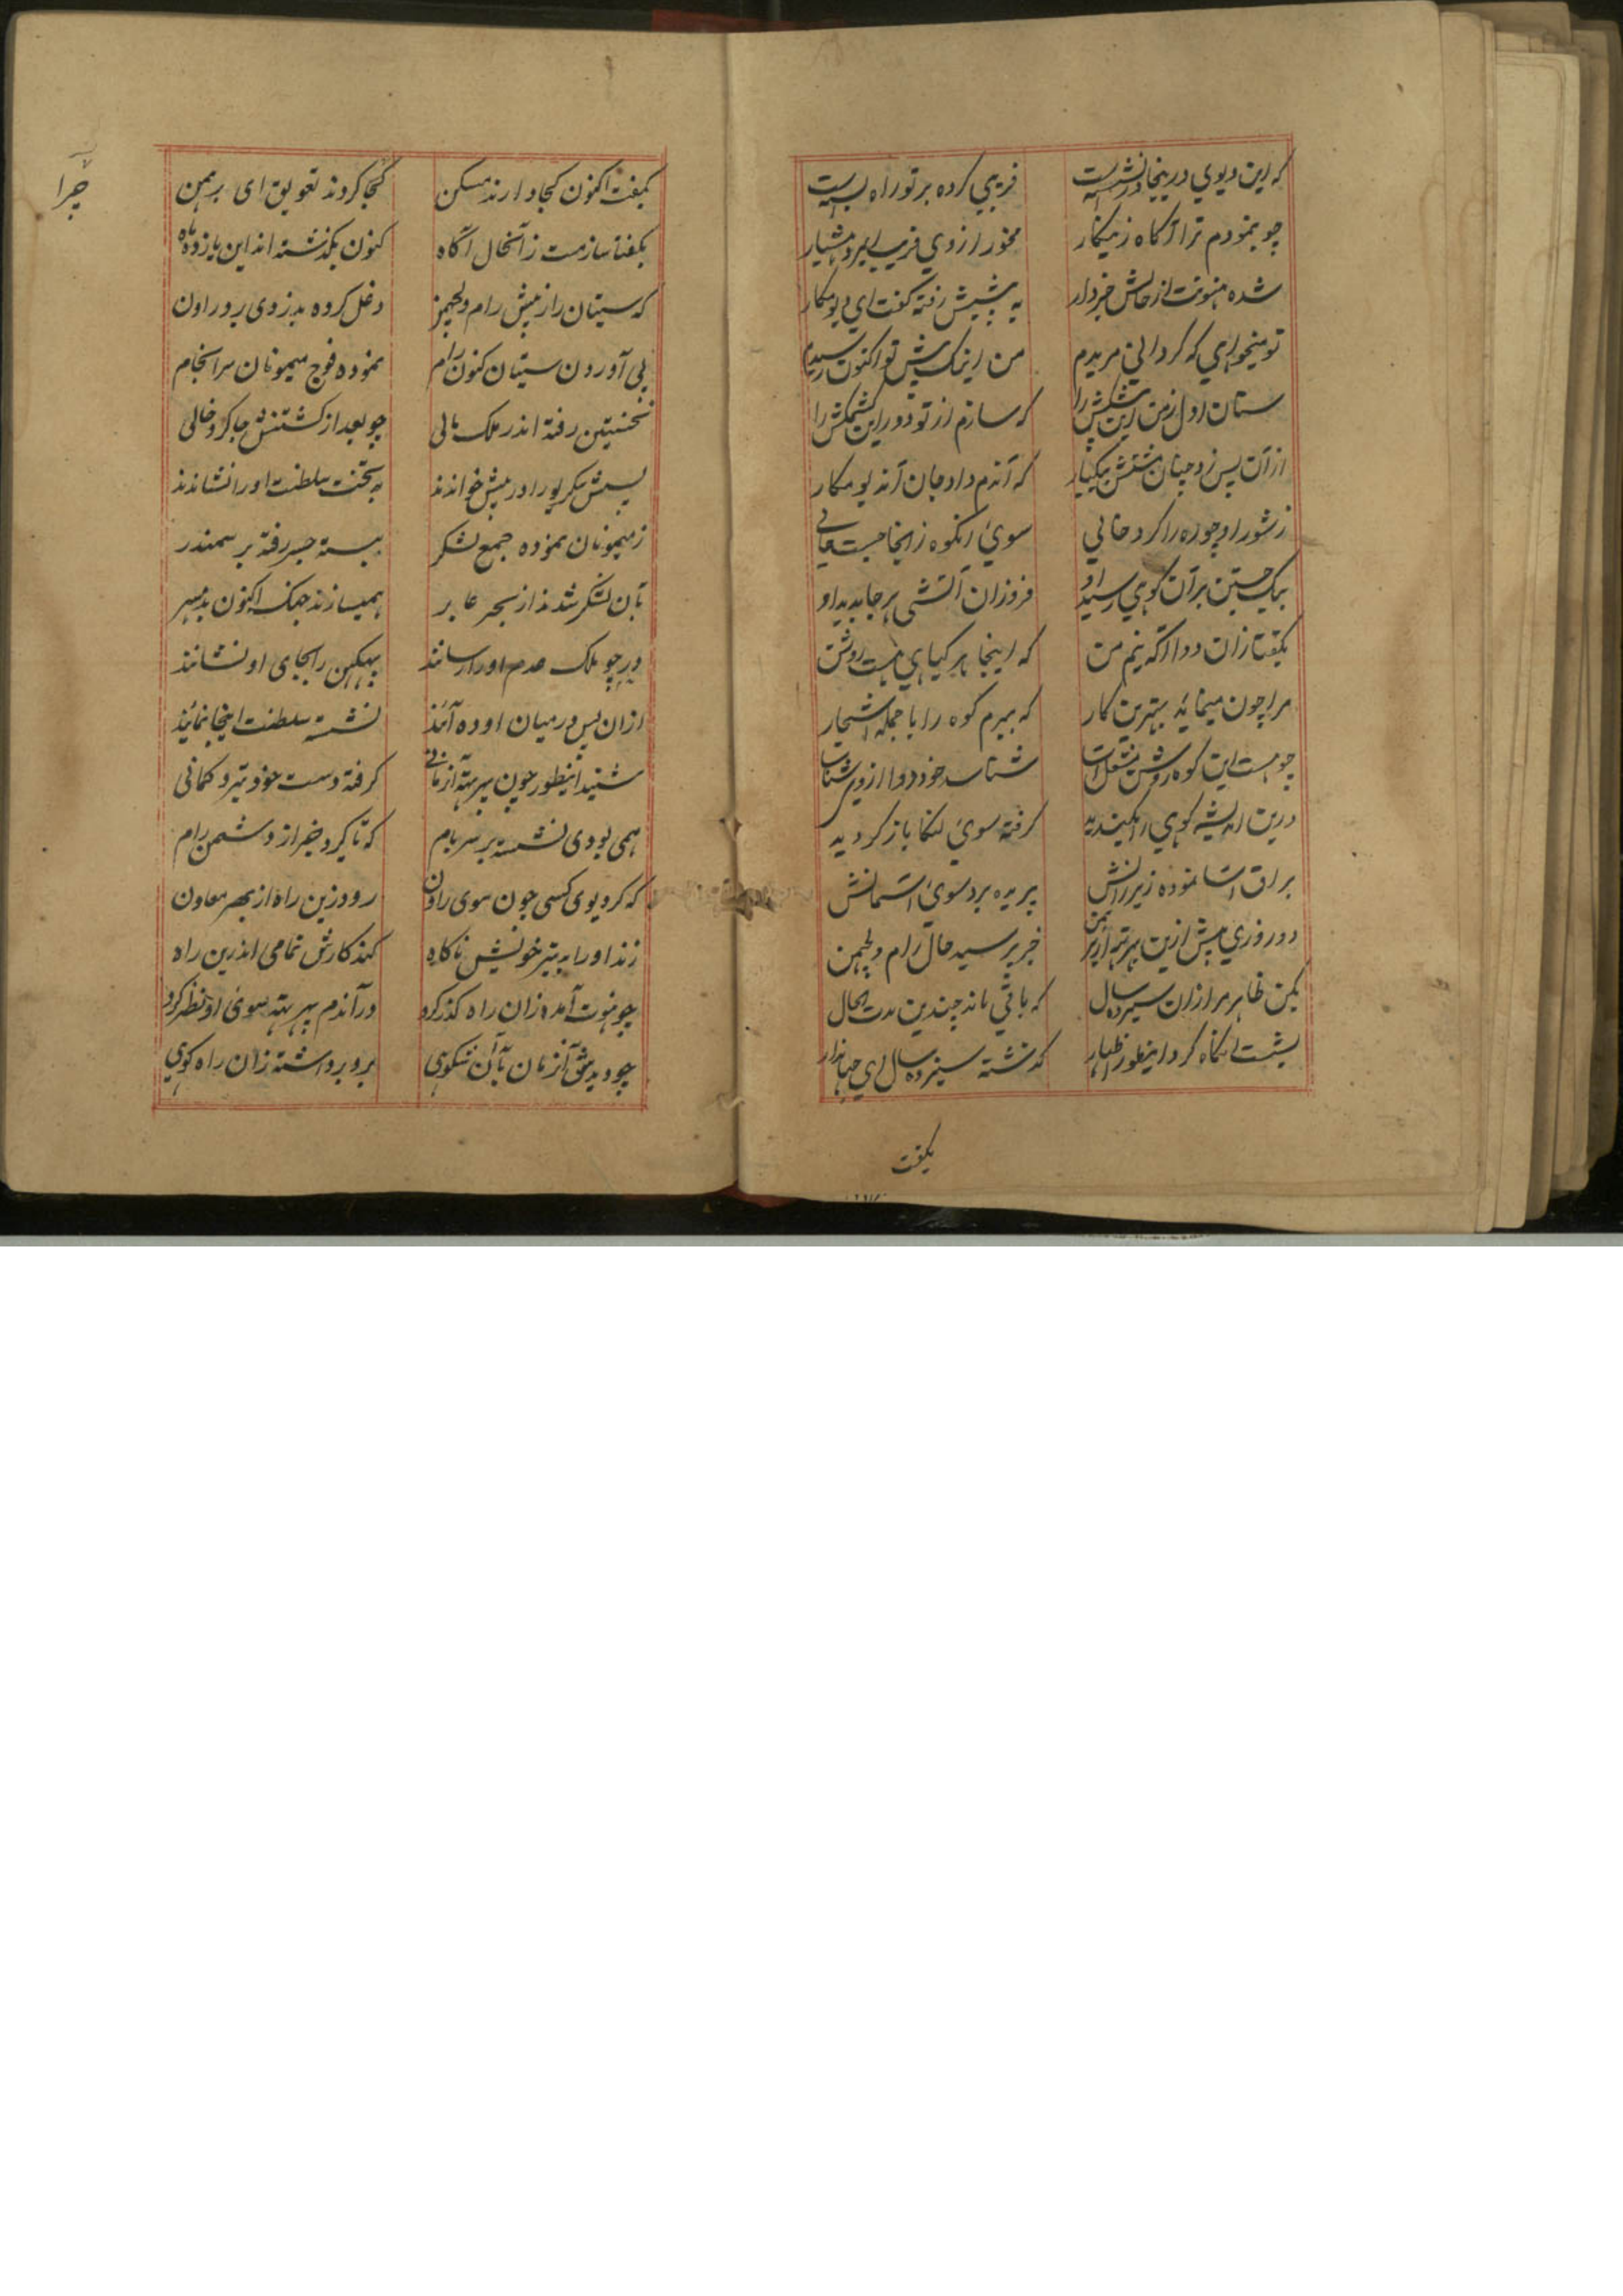 که این دیوی درینجا در نشست فریبی کرده بر تو راه بست
چو نمودم ترا آگاه زینکار مخور از وی فریب ای مرد هشیار
شده هنونت از حالش خبردار به پیشش رفته گفت ای دیو مکار
تو میخواهی که گردانی مریدم من اینک پیش تو اکنون رسیدم
ستان اول ز من این پیشکش را که سازم از تو دور این کشمکش را
از آن پس زد چنان مشتش بیکبار که آندم داد جان آندیو مکار
ز شور او چو ره را کرد خالی سوی آنکوه زانجا جست عالی
بیک جستن بر آن کوهی رسید او فروزان آتشی هر جا بدید او
بگفتا زان دوا آگه نیم من که اینجا هر گیاهی هست روشن
مرا چون مینماید بهترین کار که ببرم کوه را با جمله اشجار
چو هست این کوه روشن شناسد خود دوا از وی
درین اندیشه کوهی را بکندید گرفته سوی لنکا باز گردید
براق آسا نموده زیر رانش پریده برد سوی آسمانش
دو روزی پیش ازین بهرته از برهمن خبر پرسید حال رام و لچهمن
بکن ظاهر مرا زان سیزده سال که باقی ماند چندین مدت الحال
بشست آنگاه کرد اینطور اظهار گذشته سیزده سال ای جهاندار
بگفت
بگفت اکنون کجا دارند مسکن کجا کردند تعویق ای برهمن
بگفتا سازمت ز آنحال آگاه کنون بگذشته اند این یازده ماه
که سیتان را ز پیش رام و لچهمن دغل کرده بدزدی برد راون
پی آوردن سیتان کنون رام نموده فوج میمونان سرانجام
نخستین رفته اندر ملک بالی چو بعد از کشتنش جا کرد خالی
پسش سکریو را در پیش خواندند به تخت سلطنت او را نشاندند
ز میمونان نموده جمع لشکر ببسته جسر رفته بر سمندر
بآن لشکر شدند از بحر عابر همیسازند جنگ اکنون
در چو ملک عدم او را رسانند بهبیکن را بجای او نشانند
ازان پس در میان اوده آیند نشسته سلطنت اینجا نمایند
شنید اینطور چون بهرته آنزمانی گرفته دست خود تیر و کمانی
همی بودی نشسته بر سر بام که تا گیرد خبر از دشمن رام
که گر دیوی کسی چون سوی راون رود زین راه از بهر معاون
زند او را به تیر خویش ناگاه کند کارش تمامی اندرین راه
چو هنوت آمده زان راه گذر کرد در آندم بهرته سوی او نظر کرد
چو دیدش آنزمان با آن شکوهی برو برداشته زان راه کوهی
چرا